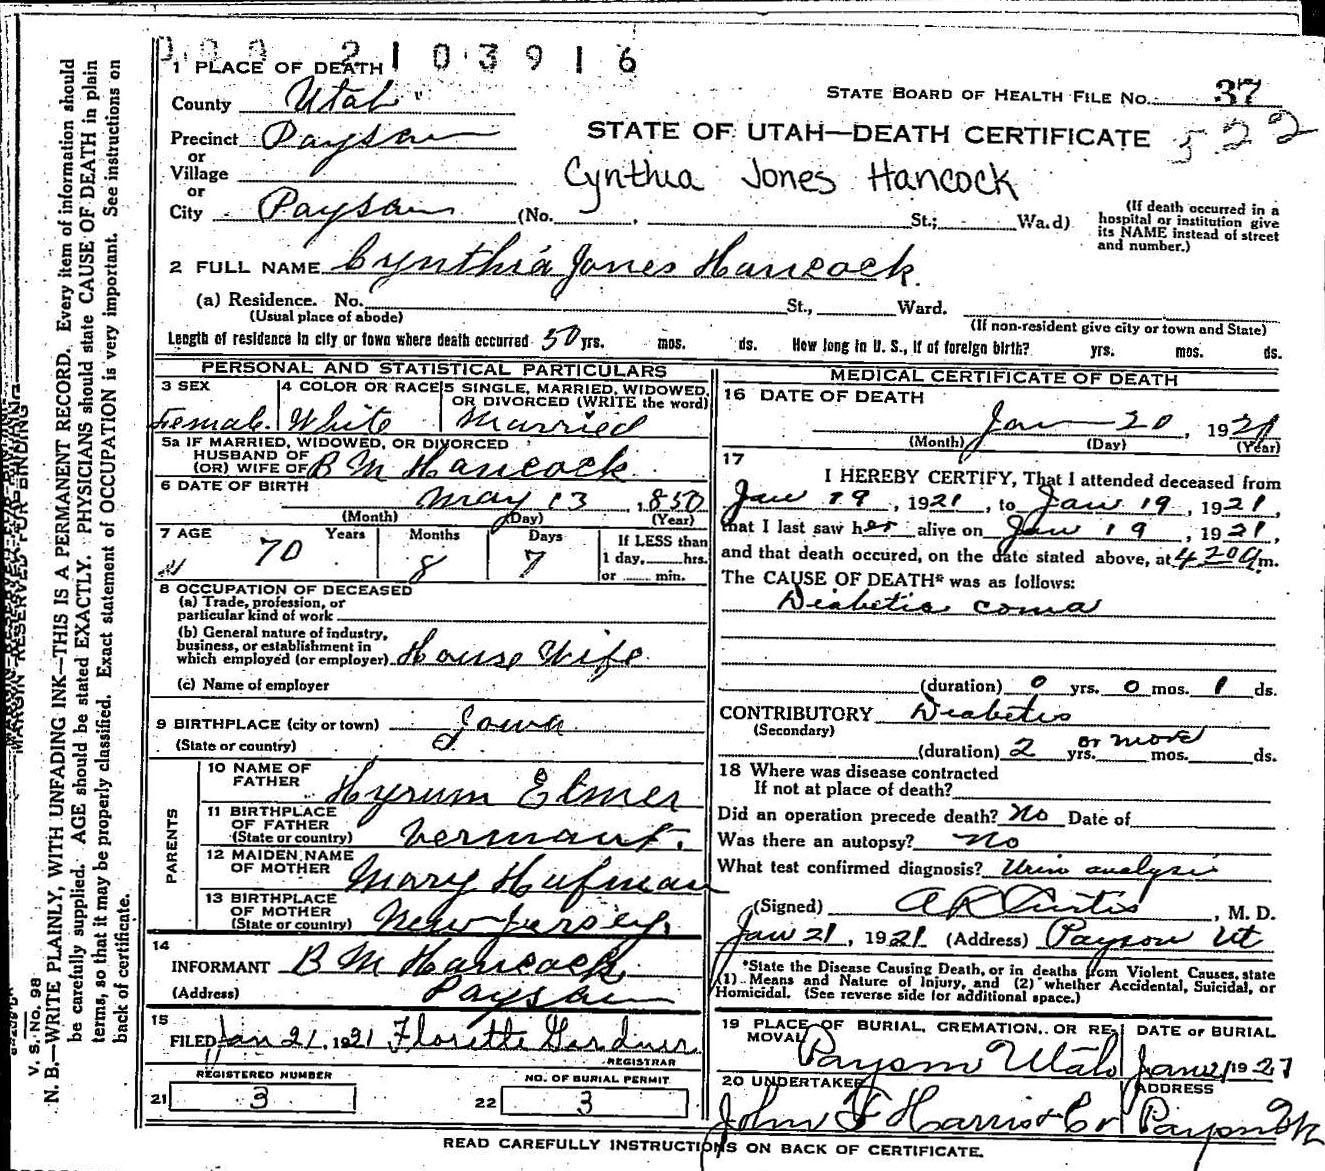 0 0 0 2 1 0 3 9 1 6
1 PLACE OF DEATH
County Utah
STATE BOARD OF HEALTH FILE NO. 37
Precinct Payson
STATE OF UTAH—DEATH CERTIFICATE 522
or
Village
Cynthia Jones Hancock
or
City Payson (No. , St.; Wa.d)
(If death occurred in a
hospital or institution give
its NAME instead of street
and number.)
2 FULL NAME Cynthia Jones Hancock.
(a) Residence. No. St., Ward.
(Usual place of abode) (If non-resident give city or town and State)
Length of residence in city or town where death occurred 50 yrs. mos. ds. How long in U. S., if of foreign birth? yrs. mos. ds.
PERSONAL AND STATISTICAL PARTICULARS
3 SEX 4 COLOR OR RACE 5 SINGLE, MARRIED, WIDOWED
OR DIVORCED (WRITE the word)
Female White Married
5a IF MARRIED, WIDOWED, OR DIVORCED
HUSBAND OF
(OR) WIFE OF B M Hancock
6 DATE OF BIRTH
May 13 1850
(Month) (Day) (Year)
7 AGE Years Months Days If LESS than
70 8 7 1 day, hrs.
or min.
8 OCCUPATION OF DECEASED
(a) Trade, profession, or
particular kind of work
(b) General nature of industry,
business, or establishment in
which employed (or employer) House Wife
(c) Name of employer
9 BIRTHPLACE (city or town) Iowa
(State or country)
PARENTS
10 NAME OF
FATHER Hyrum Elmer
11 BIRTHPLACE
OF FATHER
(State or country) Vermont.
12 MAIDEN NAME
OF MOTHER Mary Hufman
13 BIRTHPLACE
OF MOTHER
(State or country) New Jersey,
14
INFORMANT B M Hancock
(Address) Payson
15
FILED Jan 21, 1921 Florette Gardner
REGISTRAR
REGISTERED NUMBER NO. OF BURIAL PERMIT
21 3 22 3
MEDICAL CERTIFICATE OF DEATH
16 DATE OF DEATH
Jan 20, 1921
(Month) (Day) (Year)
17
I HEREBY CERTIFY, That I attended deceased from
Jan 19, 1921, to Jan 19, 1921,
that I last saw her alive on Jan 19, 1921,
and that death occured, on the date stated above, at 4 20 a m.
The CAUSE OF DEATH* was as follows:
Diabetic coma
(duration) 0 yrs. 0 mos. 1 ds.
CONTRIBUTORY Diabetis
(Secondary)
(duration) 2 yrs. or more mos. ds.
18 Where was disease contracted
If not at place of death?
Did an operation precede death? No Date of
Was there an autopsy? No
What test confirmed diagnosis? Urin analysis
(Signed) A R Curtis, M. D.
Jan 21, 1921 (Address) Payson Ut
*State the Disease Causing Death, or in deaths from Violent Causes, state
(1) Means and Nature of Injury, and (2) whether Accidental, Suicidal, or
Homicidal. (See reverse side for additional space.)
19 PLACE OF BURIAL, CREMATION, OR RE- DATE OF BURIAL
MOVAL Payson Utah Jan 21 1921
20 UNDERTAKER ADDRESS
John F Harris & Co Payson Ut
READ CAREFULLY INSTRUCTIONS ON BACK OF CERTIFICATE.
MARGIN RESERVED FOR BINDING
V. S. No. 98
N. B.—WRITE PLAINLY, WITH UNFADING INK—THIS IS A PERMANENT RECORD. Every item of information should
be carefully supplied. AGE should be stated EXACTLY. PHYSICIANS should state CAUSE OF DEATH in plain
terms, so that it may be properly classified. Exact statement of OCCUPATION is very important. See instructions on
back of certificate.